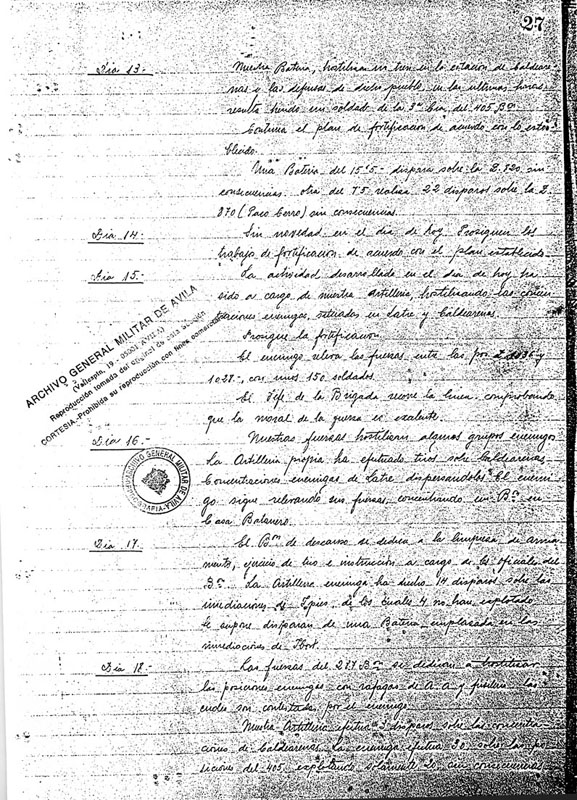 27
Dia 13.- Nuestra Bateria, hostiliza un tren en la estación de Caldear
nas e las defensas de dicho pueblo en las ultimas horas
resulta herido un soldado de la 3ª Cia. del 405 Bº
Continua el plan de fortificación de acuerdo con lo esta
blecido.
Una Bateria del 15'5 dispara sobre la 2.720 sin
consecuencias otra del 7'5 realiza 22 disparos sobre la 2.
870 (Paco Cerro) sin consecuencias.
Dia 14.- Sin novedad en el dia de hoy. Prosiguen los
trabajo de fortificación de acuerdo con el plan establecido
Dia 15.- La actividad desarrollada en el dia de hoy ha
sido a cargo de nuestra Artilleria, hostilizando las concen
traciones enemigas, situadas en Latre y Caldearenas.
Prosigue la fortificación
El enemigo releva las fuerzas entre las y
1028, con unos 150 soldados.
El Jefe de la Brigada recorre la linea comprobando
que la moral de la fuerza es exelente.
Dia 16.- Nuestras fuerzas hostilizan algunos grupos enemigos
La Artilleria propia ha efectuado tiros sobre Caldearenas
Concentraciones enemigas de Latre dispersandoles El enemi
go sigue relevando sus fuerzas, concentrando un Bº en
Casa Batanero.
Dia 17.- El Bºn de descanso se dedica a la limpieza de arma
mento, ejercicio de tiro e instrucción a cargo de los oficiales del
Bº. La Artilleria enemiga ha hecho 14 disparos sobre las
inmediaciones de Ipies, de los cuales 4 no han explotado
se supone disparan de una Bateria emplazada en las
inmediaciones de
Dia 18.- Las fuerzas del 217 Bº se dedican a hostilizar
las posiciones enemigas con rafagas de A.A. y fusileria las
cuales son contestadas por el enemigo
Nuestra Artilleria efectua 3 disparos sobre las concentra
ciones de Caldearenas. La enemiga efectua 30 sobre las po
siciones del 405 explotando solamente 2 sin consecuencias
ARCHIVO GENERAL MILITAR DE AVILA
(Vallespín, 19 - 05001-AVILA)
Reproducción tomada del original de esta sección
CORTESIA-Prohibida su reproducción con fines comerciales
GENERAL MILITAR DE AVILA